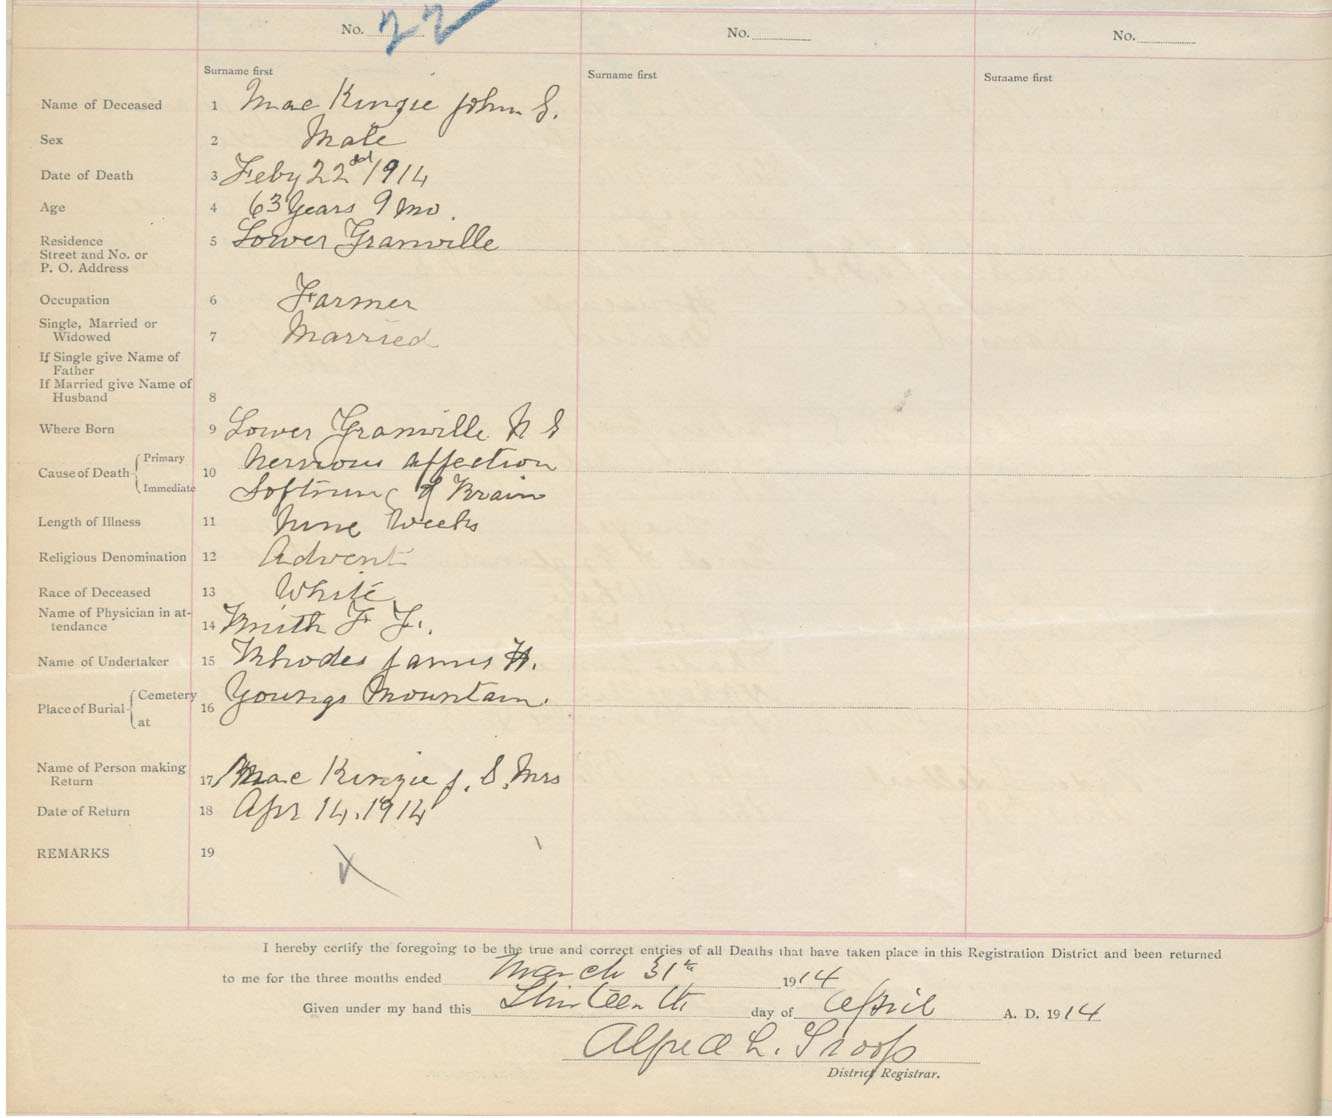 No. 22
No.
No.
Surname first
Surname first
Surname first
Name of Deceased 1 Mac Kinzie John S.
Sex 2 Male
Date of Death 3 Feby 22nd 1914
Age 4 63 Years 9 Mo.
Residence 5 Lower Granville
Street and No. or
P. O. Address
Occupation 6 Farmer
Single, Married or
Widowed 7 Married
If Single give Name of
Father
If Married give Name of
Husband 8
Where Born 9 Lower Granville N S
Primary Nervious affection
Cause of Death 10
Immediate Softning of Brain
Length of Illness 11 Nine Weeks
Religious Denomination 12 Advent
Race of Deceased 13 White
Name of Physician in at-
tendance 14 Smith F F.
Name of Undertaker 15 Rhodes James H.
Cemetery Youngs Mountain.
Place of Burial 16
at
Name of Person making
Return 17 Mac Kinzie J. S. Mrs
Date of Return 18 Apr 14, 1914
REMARKS 19
I hereby certify the foregoing to be the true and correct entries of all Deaths that have taken place in this Registration District and been returned
to me for the three months ended March 31 1914
Given under my hand this day of April A. D. 1914
Alfred L. Troop
District Registrar.